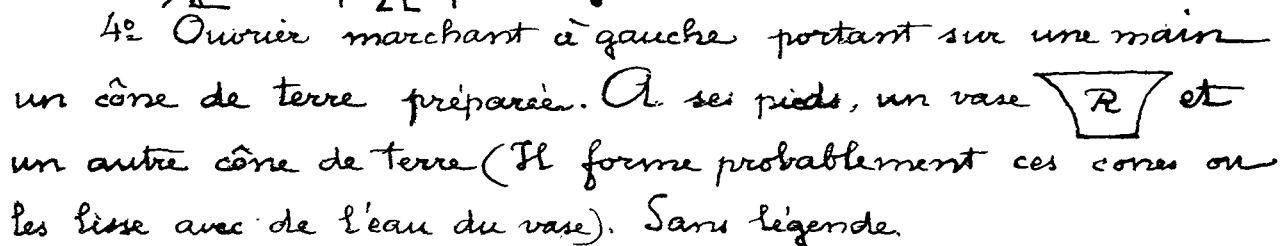 4º Ouvrier marchant à gauche portant sur une main
un cône de terre préparée. A ses pieds, un vase R et
un autre cône de terre (Il forme probablement ces cones ou
les lisse avec de l'eau du vase). Sans légende.